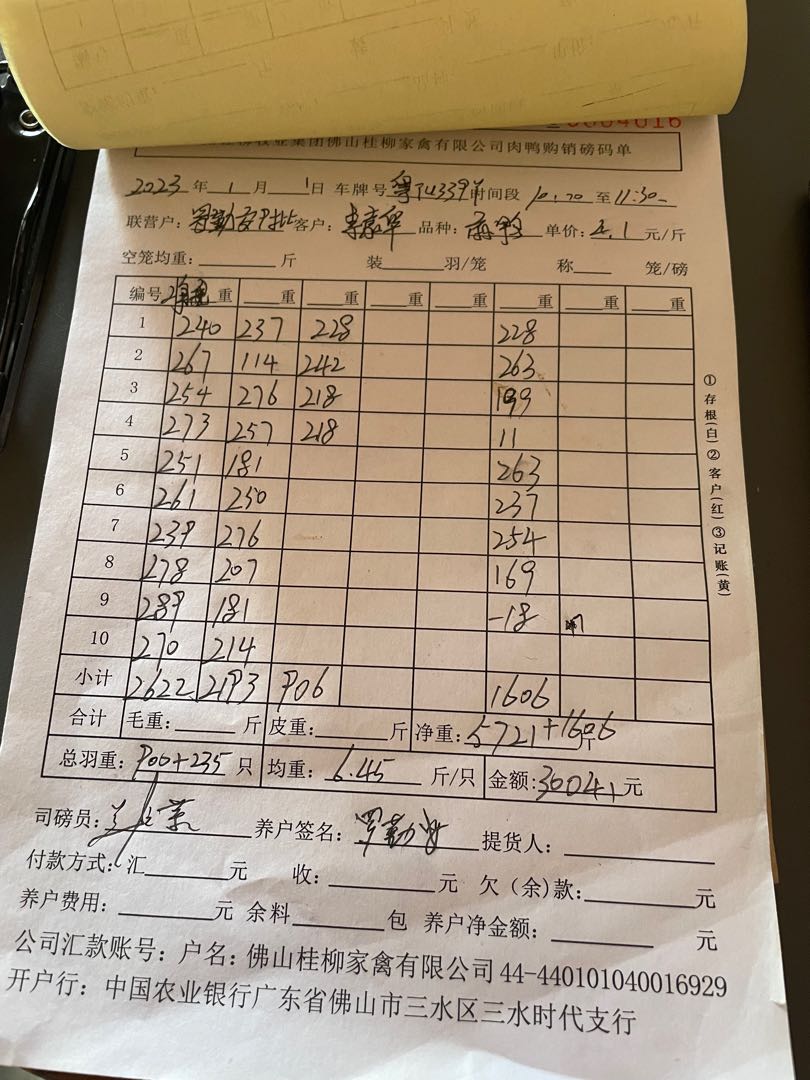 0004016
牧业集团佛山桂柳家禽有限公司肉鸭购销磅码单
2023年1月1日 车牌号 时间段 10:20至11:30
联营户: 客户: 品种: 单价: 4.1元/斤
空笼均重: 斤 装 羽/笼 称 笼/磅
编号 重 重 重 重 重 重 重 重
1 240 237 228 228
2 267 114 242 263
3 254 276 218 199
4 273 257 218 11
5 251 181 263
6 261 250 237
7 239 276 254
8 278 207 169
9 289 181 -18
10 270 214
小计 2622 2193 906 1606
合计 毛重: 斤 皮重: 斤 净重: 5721+1606斤
总羽重: 900+235只 均重: 6.45斤/只 金额: 30041元
司磅员: 养户签名: 提货人:
付款方式:汇 元 收: 元 欠(余)款: 元
养户费用: 元 余料 包 养户净金额: 元
公司汇款账号:户名:佛山桂柳家禽有限公司44-440101040016929
开户行:中国农业银行广东省佛山市三水区三水时代支行
①存根(白)②客户(红)③记账(黄)